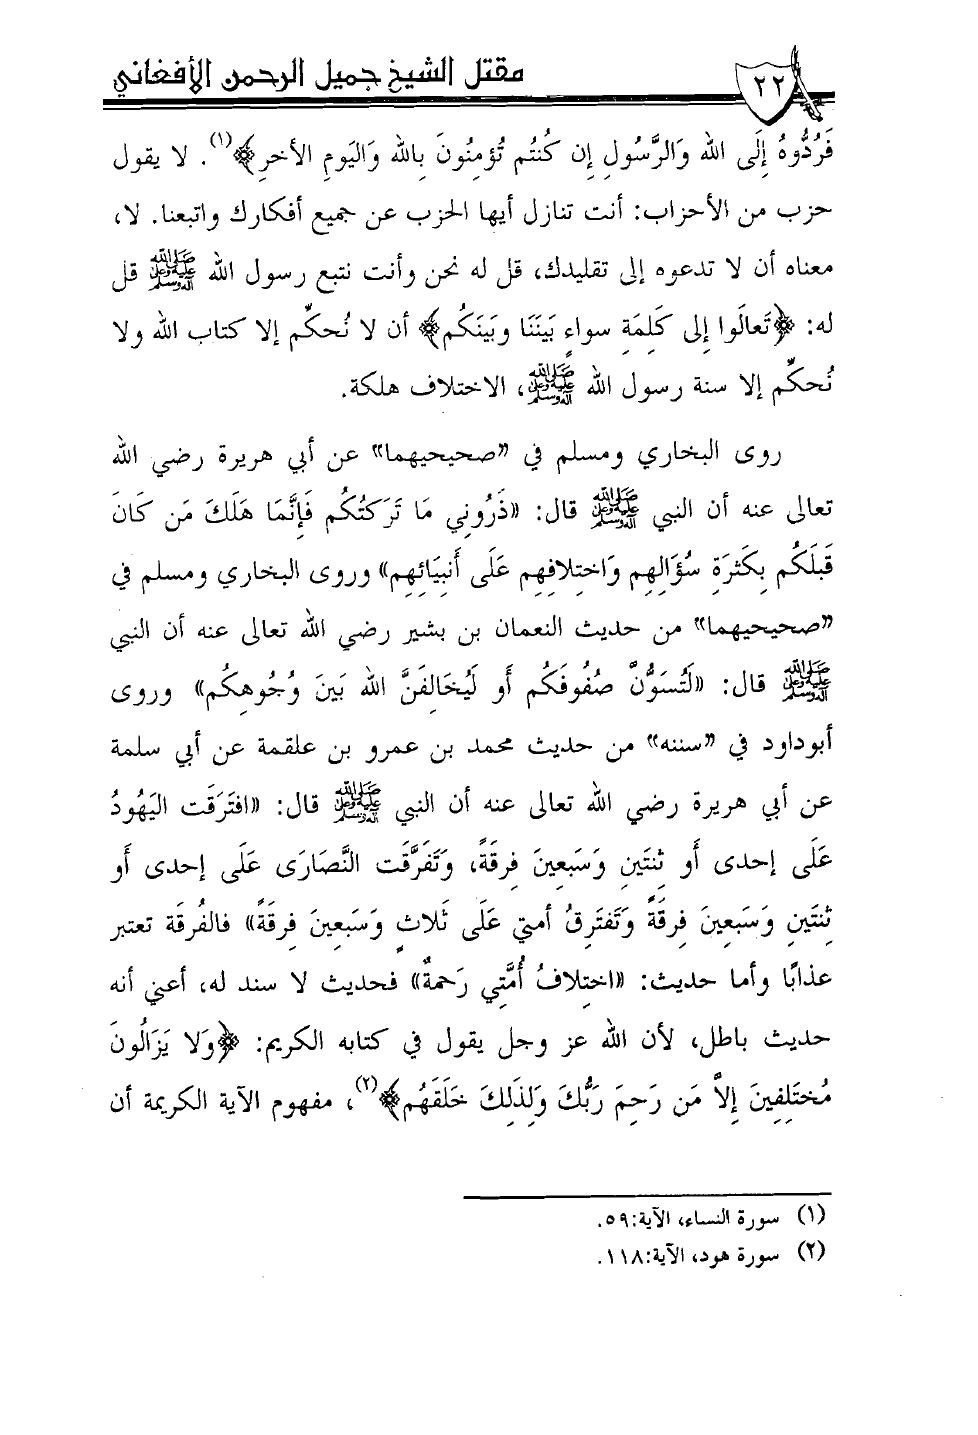 مقتل الشيخ جميل الرحمن الأفغاني
٢٢
فَرُدُّوهُ إِلَى الله وَالرَّسُولِ إِن كُنتُم تُؤمِنُونَ بِالله وَاليَومِ الأخرِ﴾(١). لا يقول
حزب من الأحزاب: أنت تنازل أيها الحزب عن جميع أفكارك واتبعنا. لا،
معناه أن لا تدعوه إلى تقليدك، قل له نحن وأنت نتبع رسول الله ﷺ قل
له: ﴿تَعالَوا إِلى كَلِمَةِ سواءٍ بَينَنَا وبَينَكُم﴾ أن لا نُحكِّم إلا كتاب الله ولا
نُحكِّم إلا سنة رسول الله ﷺ، الاختلاف هلكة.
روى البخاري ومسلم في "صحيحيهما" عن أبي هريرة رضي الله
تعالى عنه أن النبي ﷺ قال: «ذَرُوني مَا تَرَكتُكُم فَإِنَّمَا هَلَكَ مَن كَانَ
قَبلَكُم بِكَثرَةِ سُؤَالِهِم وَاختِلافِهِم عَلَى أَنبِيَائِهِم» وروى البخاري ومسلم في
"صحيحيهما" من حديث النعمان بن بشير رضي الله تعالى عنه أن النبي
ﷺ قال: «لَتُسَوُّنَّ صُفُوفَكُم أَو لَيُخَالِفَنَّ الله بَينَ وُجُوهِكُم» وروى
أبوداود في "سننه" من حديث محمد بن عمرو بن علقمة عن أبي سلمة
عن أبي هريرة رضي الله تعالى عنه أن النبي ﷺ قال: «افتَرَقَت اليَهُودُ
عَلَى إحدى أَو ثِنتَينِ وَسَبعِينَ فِرقَةً، وَتَفَرَّقَت النَّصَارَى عَلَى إحدى أَو
ثِنتَينِ وَسَبعِينَ فِرقَةً وَتَفتَرِقُ أمتي عَلَى ثَلاثٍ وَسَبعِينَ فِرقَةً» فالفُرقَة تعتبر
عذابًا وأما حديث: «اختِلافُ أُمَّتِي رَحمةٌ» فحديث لا سند له، أعني أنه
حديث باطل، لأن الله عز وجل يقول في كتابه الكريم: ﴿وَلا يَزَالُونَ
مُختَلِفِينَ إِلاَّ مَن رَحِمَ رَبُّكَ وَلِذَلِكَ خَلَقَهُم﴾(٢)، مفهوم الآية الكريمة أن
(١) سورة النساء، الآية:٥٩.
(٢) سورة هود، الآية:١١٨.